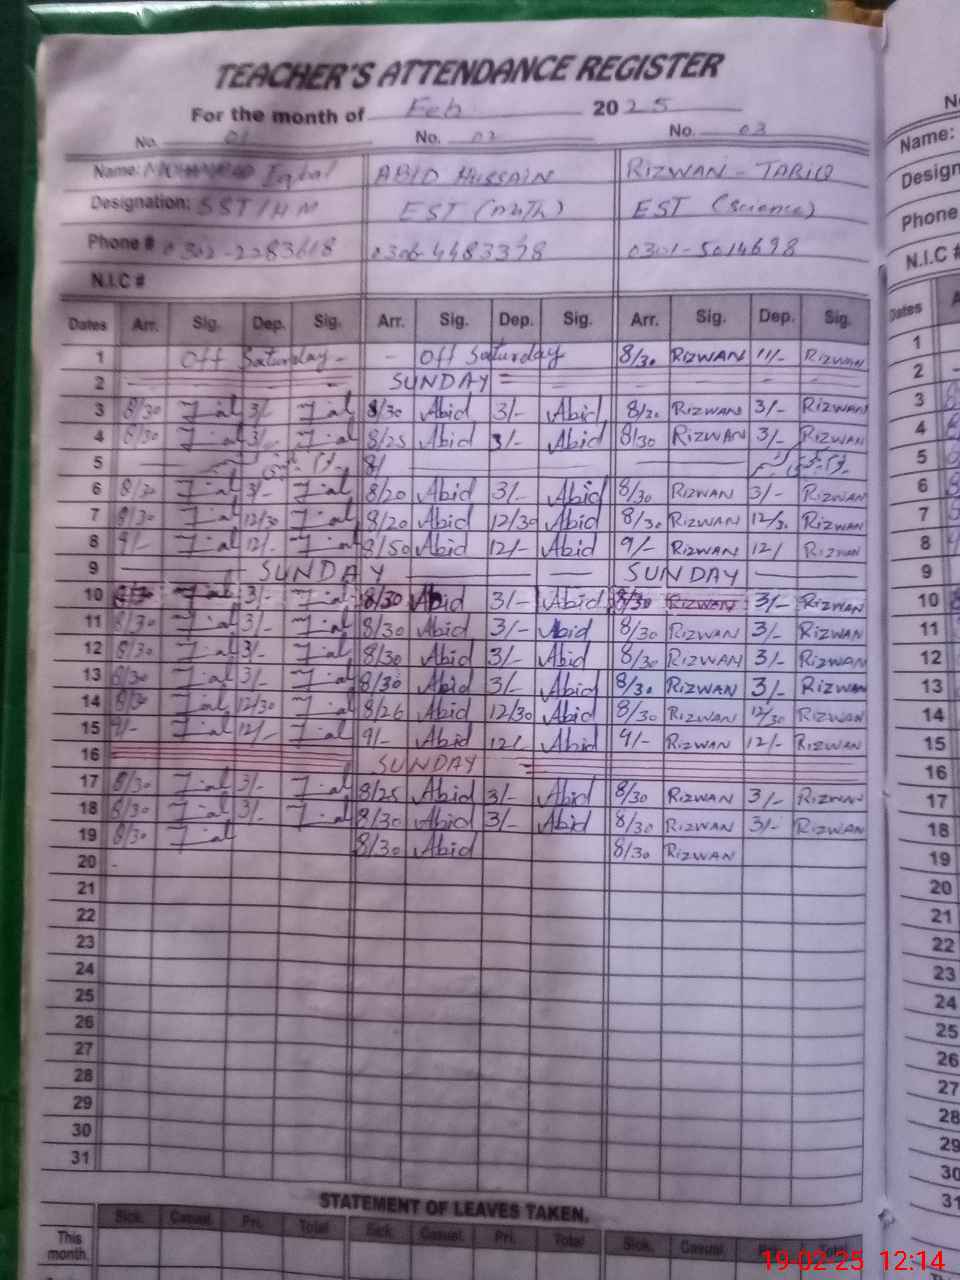 TEACHER'S ATTENDANCE REGISTER
For the month of Feb 2025
No. 01 No. 02 No. 03
Name: Iqbal ABID HUSSAIN RIZWAN - TARIQ
Designation: SST/HM EST (math) EST (science)
Phone # 0301-5014698
N.I.C #
Dates Arr. Sig. Dep. Sig. Arr. Sig. Dep. Sig. Arr. Sig. Dep. Sig.
1 Off Saturday - - Off Saturday 8/30 RIZWAN 11/- RIZWAN
2 SUNDAY
3 8/30 3/- 8/30 Abid 3/- Abid 8/30 RIZWAN 3/- RIZWAN
4 8/30 3/- 8/25 Abid 3/- Abid 8/30 RIZWAN 3/- RIZWAN
5 8/
6 8/30 3/- 8/20 Abid 3/- Abid 8/30 RIZWAN 3/- RIZWAN
7 8/30 12/30 8/20 Abid 12/30 Abid 8/30 RIZWAN 12/30 RIZWAN
8 9/- 12/- 8/50 Abid 12/- Abid 9/- RIZWAN 12/ RIZWAN
9 SUNDAY SUNDAY
10 8/30 3/- 8/30 Abid 3/- Abid 8/30 RIZWAN 3/- RIZWAN
11 8/30 3/- 8/30 Abid 3/- Abid 8/30 RIZWAN 3/- RIZWAN
12 8/30 3/- 8/30 Abid 3/- Abid 8/30 RIZWAN 3/- RIZWAN
13 8/30 3/- 8/30 Abid 3/- Abid 8/30 RIZWAN 3/- RIZWAN
14 8/30 12/30 8/26 Abid 12/30 Abid 8/30 RIZWAN 12/30 RIZWAN
15 9/- 12/- 9/- Abid 12/- Abid 9/- RIZWAN 12/- RIZWAN
16 SUNDAY
17 8/30 3/- 8/25 Abid 3/- Abid 8/30 RIZWAN 3/- RIZWAN
18 8/30 3/- 8/30 Abid 3/- Abid 8/30 RIZWAN 3/- RIZWAN
19 8/30 8/30 Abid 8/30 RIZWAN
20 -
21
22
23
24
25
26
27
28
29
30
31
STATEMENT OF LEAVES TAKEN.
Sick. Casual. Pri. Total Sick. Casual. Pri. Total Sick. Casual. Total
This month.
Name:
Phone
N.I.C #
Dates
1
2
3
4
5
6
7
8
9
10
11
12
13
14
15
16
17
18
19
20
21
22
23
24
25
26
27
28
29
30
31
19-02-25 12:14